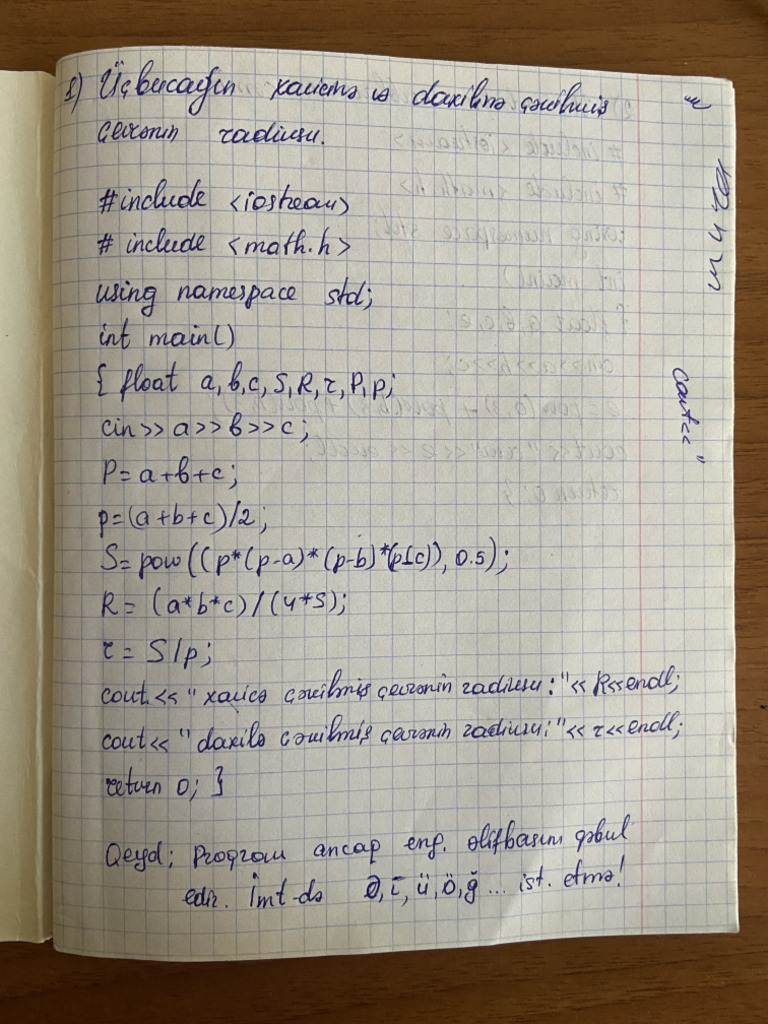 1) Üçbucağın xaricinə və daxilinə çəkilmiş
çevrənin radiusu.
#include <iostream>
# include <math.h>
using namespace std;
int main()
{ float a,b,c,S,R,r,P,p;
cin>>a>>b>>c;
P=a+b+c;
p=(a+b+c)/2;
S=pow((p*(p-a)*(p-b)*(p-c)), 0.5);
R= (a*b*c)/(4*S);
r= S/p;
cout<<"xaricə çəkilmiş çevrənin radiusu:"<<R<<endl;
cout<<"daxilə çəkilmiş çevrənin radiusu:"<<r<<endl;
return 0; }
Qeyd: Proqram ancaq eng. əlifbasını qəbul
edir. İmt-də Ə,ī,ü,ö,ğ... ist. etmə!
cout<<"